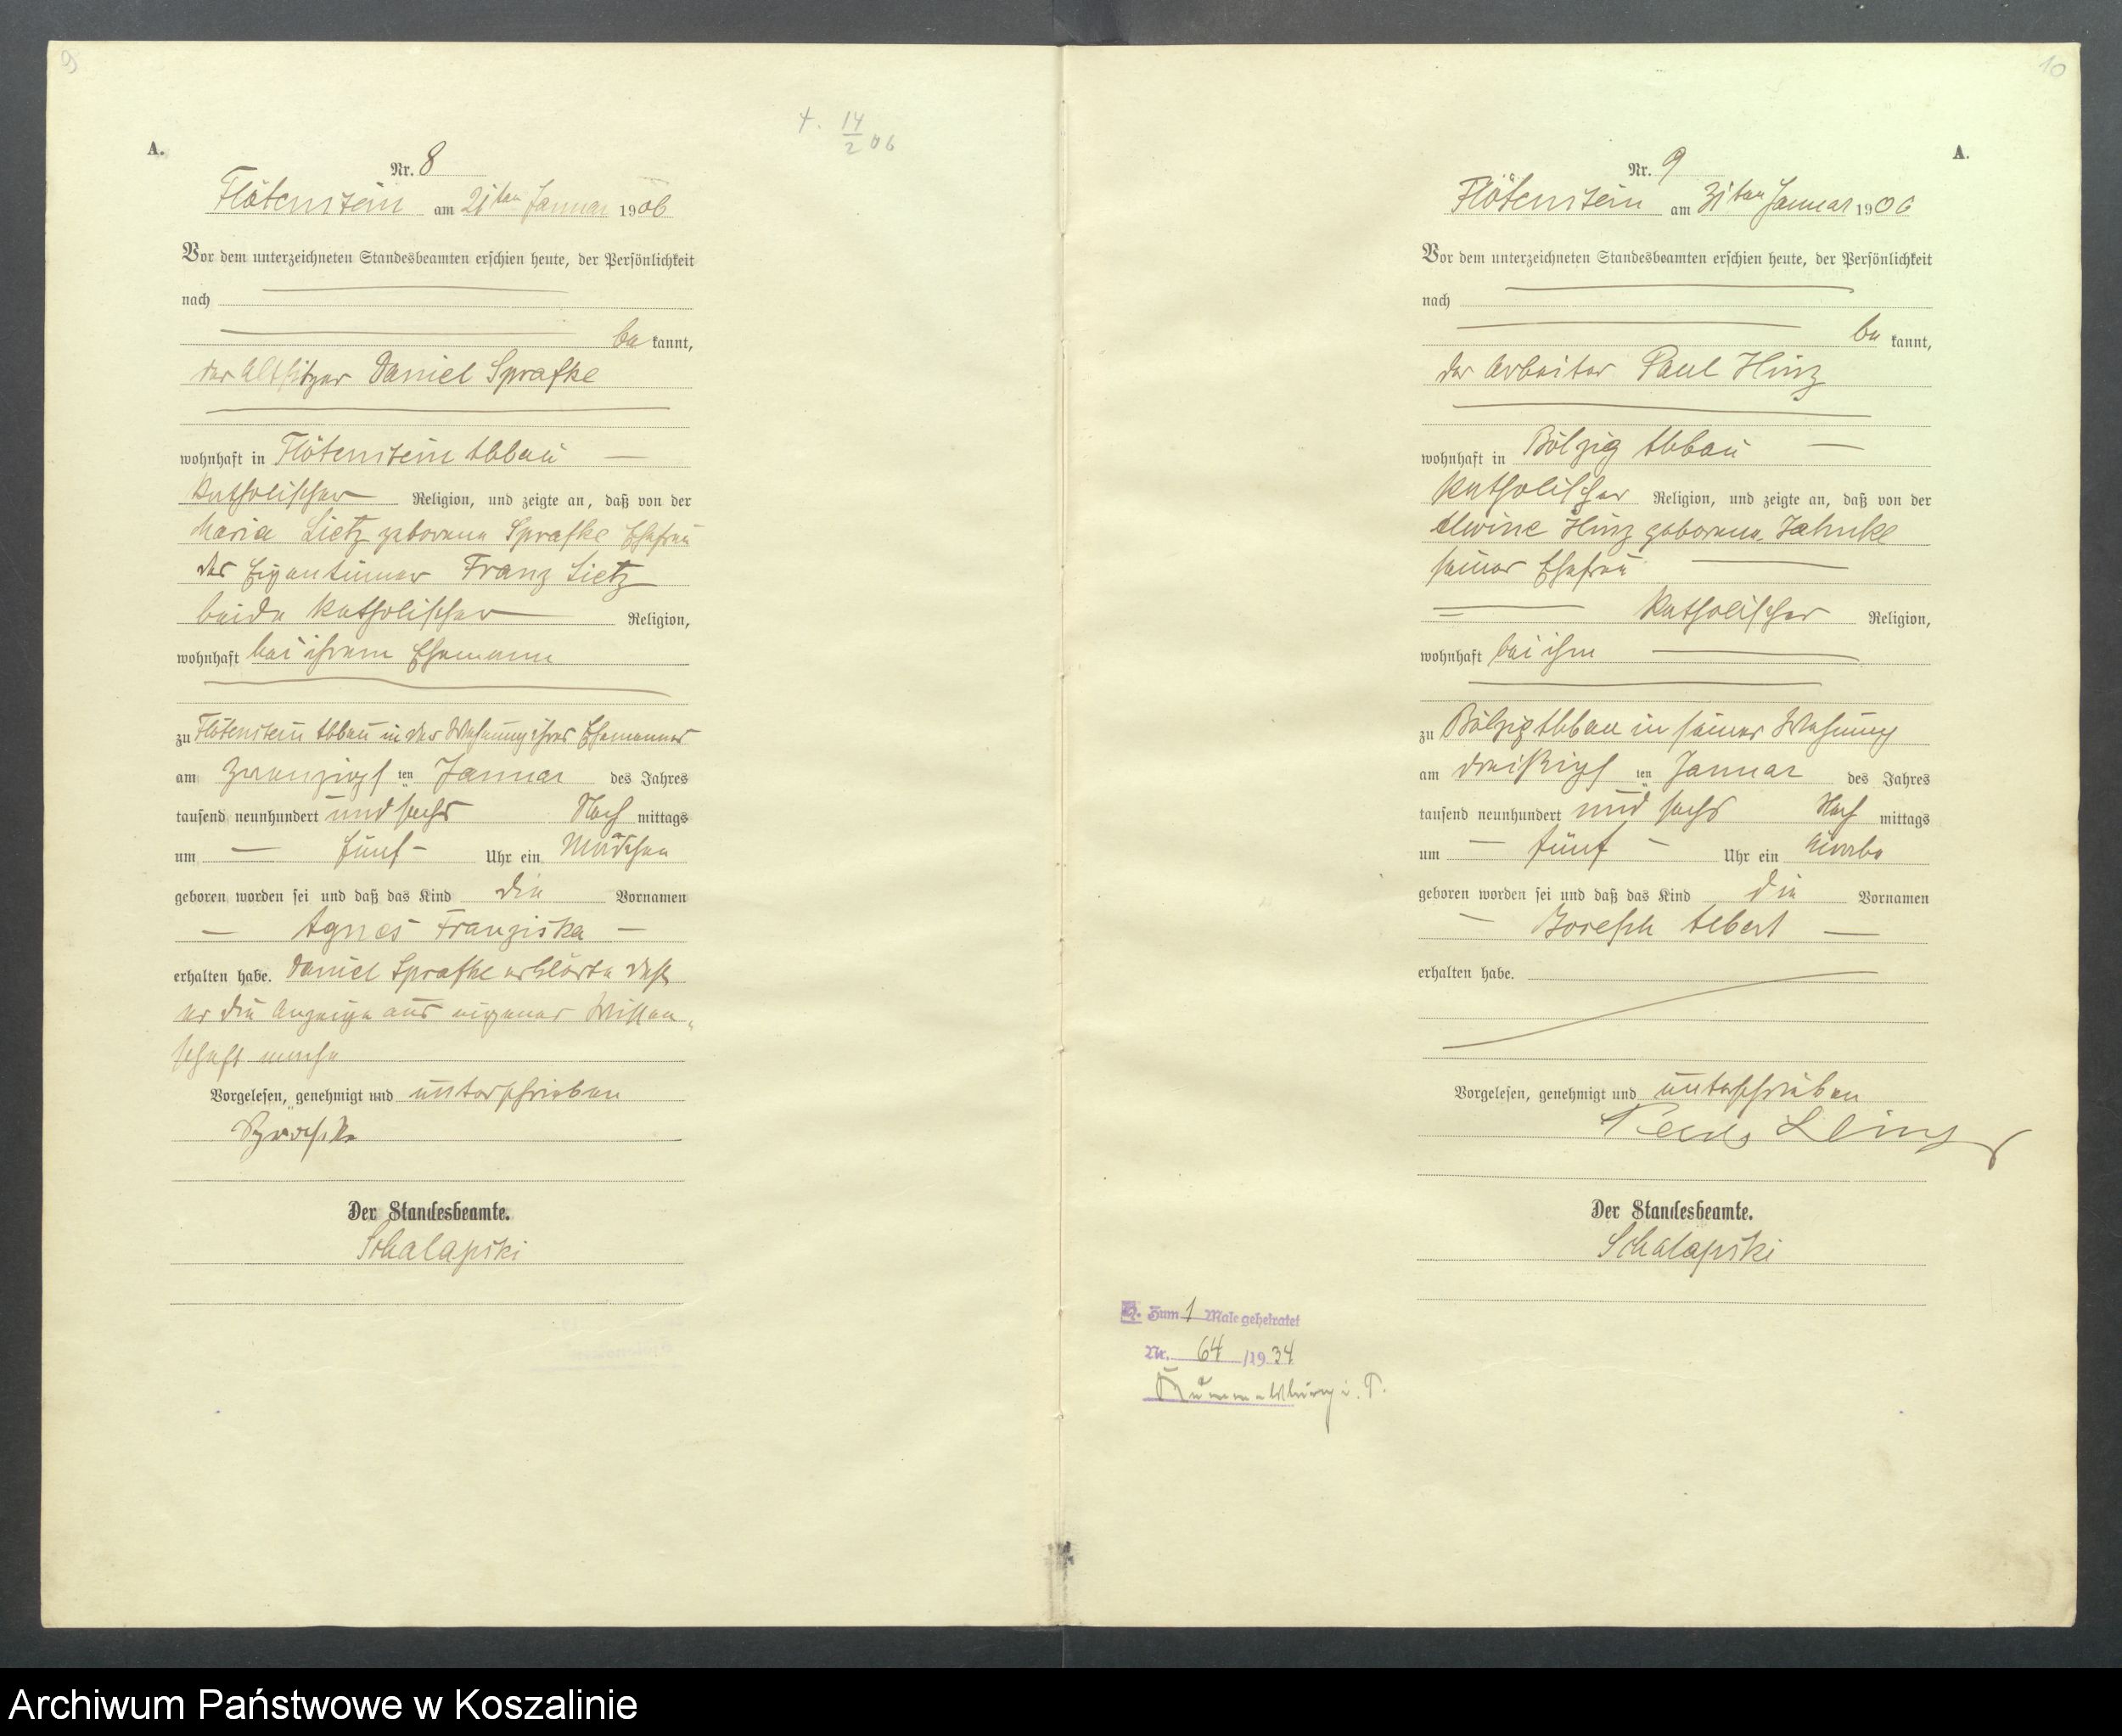 9
A.
+. 14/2 06
Nr. 8
Flötenstein am 21ten Januar 1906
Vor dem unterzeichneten Standesbeamten erschien heute, der Persönlichkeit
nach
be kannt,
der Altsitzer Daniel Sprafke
wohnhaft in Flötenstein Abbau
katholischer Religion, und zeigte an, daß von der
Maria Lietz geborene Sprafke Ehefrau
des Eigentümer Franz Lietz
beide katholischer Religion,
wohnhaft bei ihrem Ehemann
zu Flötenstein Abbau in der Wohnung ihres Ehemannes
am zwanzigsten Januar des Jahres
tausend neunhundert und sechs Nach mittags
um fünf Uhr ein Mädchen
geboren worden sei und daß das Kind die Vornamen
Agnes Franziska
erhalten habe. Daniel Sprafke erklärte daß
er die Anzeige aus eigener Wissen-
schaft mache
Vorgelesen, genehmigt und unterschrieben
Der Standesbeamte.
Schalapski
10
A.
Nr. 9
Flötenstein am 31ten Januar 1906
Vor dem unterzeichneten Standesbeamten erschien heute, der Persönlichkeit
nach
be kannt,
der Arbeiter Paul Hinz
wohnhaft in Bölzig Abbau
katholischer Religion, und zeigte an, daß von der
Alwine Hinz geborene Jahnke
seiner Ehefrau
katholischer Religion,
wohnhaft bei ihm
zu Bölzig Abbau in seiner Wohnung
am dreißigsten Januar des Jahres
tausend neunhundert und sechs Nach mittags
um fünf Uhr ein Knabe
geboren worden sei und daß das Kind die Vornamen
Joseph Albert
erhalten habe.
Vorgelesen, genehmigt und unterschrieben
Paul Hinz
Der Standesbeamte.
Schalapski
Zum 1 Male geheiratet
Nr. 64/1934
Rummelsburg i. P.
Archiwum Państwowe w Koszalinie